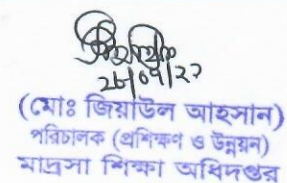 ২৮/০৭/২২
(মোঃ জিয়াউল আহসান)
পরিচালক (প্রশিক্ষণ ও উন্নয়ন)
মাদ্রাসা শিক্ষা অধিদপ্তর